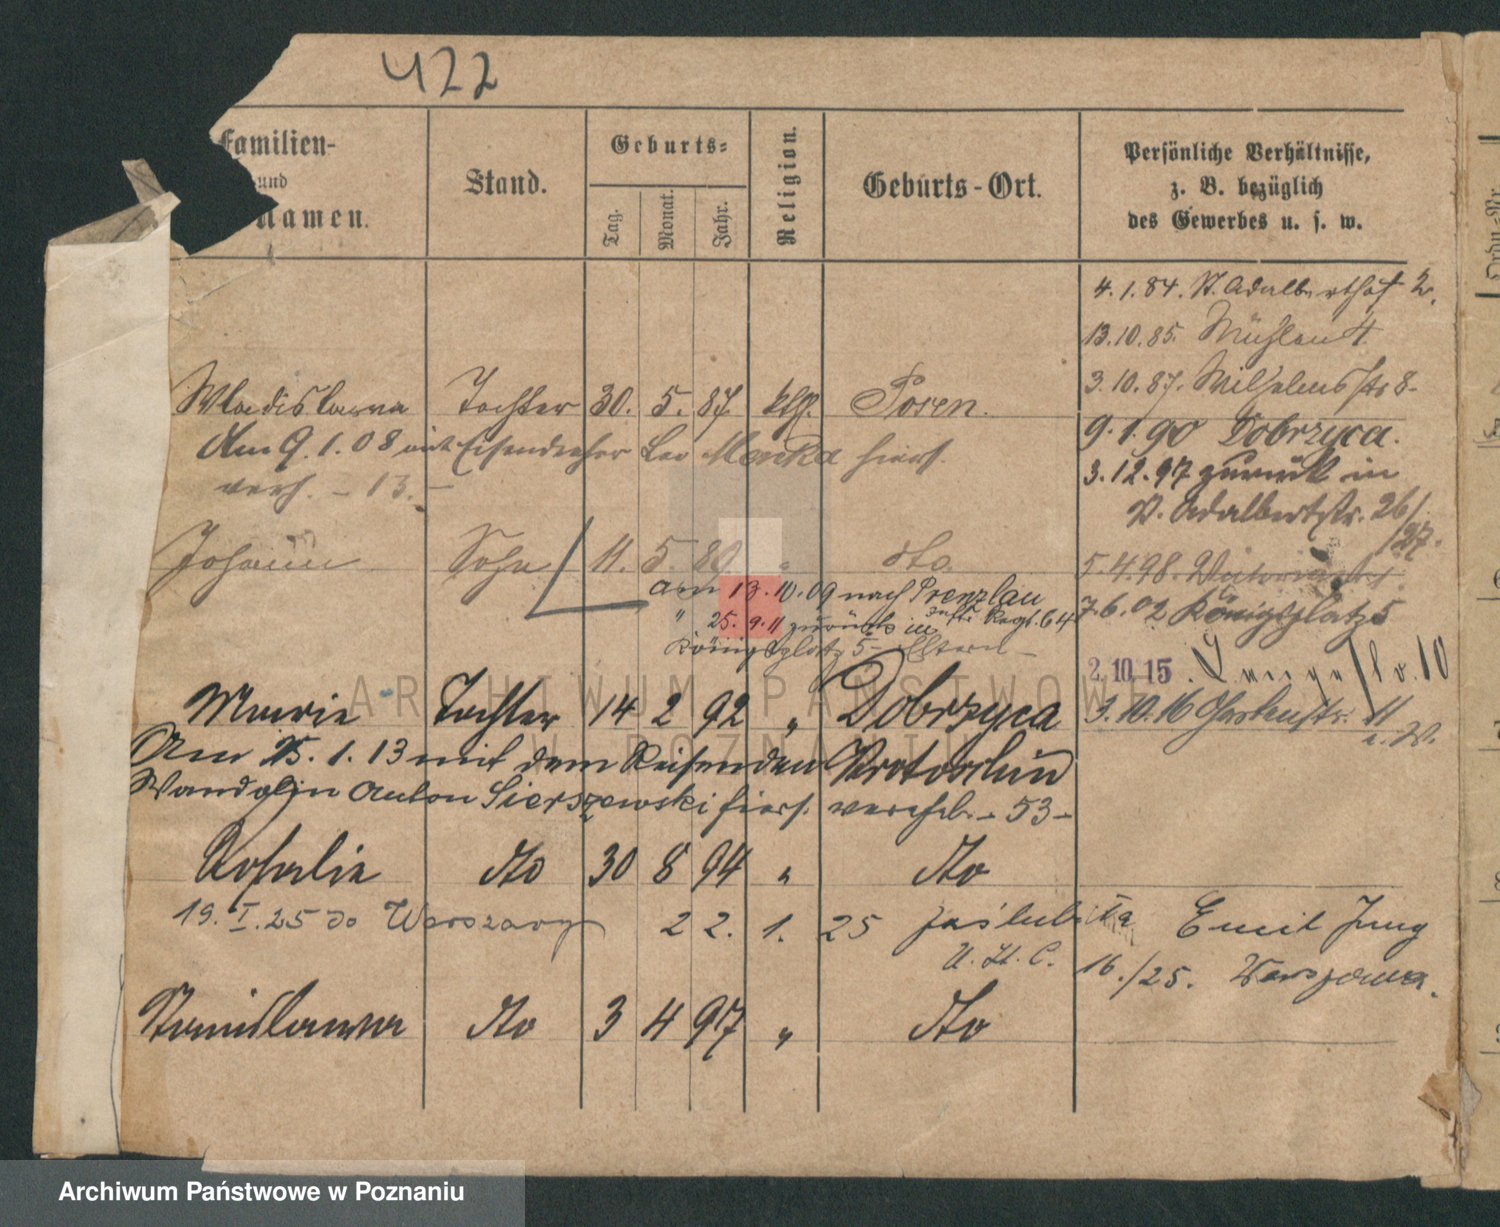 422
Familien-
und
namen.
Stand.
Geburts-
Tag.
Monat.
Jahr.
Religion.
Geburts-Ort.
Persönliche Verhältnisse,
z. B. bezüglich
des Gewerbes u. s. w.
4.1.84. St. Adalberthof 2.
13.10.85.
3.10.87. Wilhelmstr 8.
Wladislawa Tochter 30. 5. 87 kth. Posen.
9.1.90 Dobrzyca.
Am 9.1.08 mit Eisendreher Leo Monka hiers.
verh. - 13. -
3.12.97 zurück in
St. Adalbertstr. 26/
27.
Johann Sohn 11. 5. 89 " dto.
5.4.98.
am 13.10.09 nach Prenzlau
7.6.02 Königsplatz 5
" 25.9.11 zurück in Regt. 64
Königsplatz 5 - Eltern -
2.10.15. Langestr. 10
Marie Tochter 14 2 92 " Dobrzyca
3.10.16 Gartenstr. 11
Am 25.1.13 mit dem Reisenden Krotoschin
Wandalin Anton Sierszewski hiers. verehel. - 53 -
Rosalie dto 30 8 94 " dto
19.I.25 do Warszawy 22. 1. 25 zaślubiła Emil Jung
U.St.C. 16./25. Warszawa.
Stanislawa dto 3 4 97 " dto
Ordn.-Nr.
ARCHIWUM PAŃSTWOWE
W POZNANIU
Archiwum Państwowe w Poznaniu